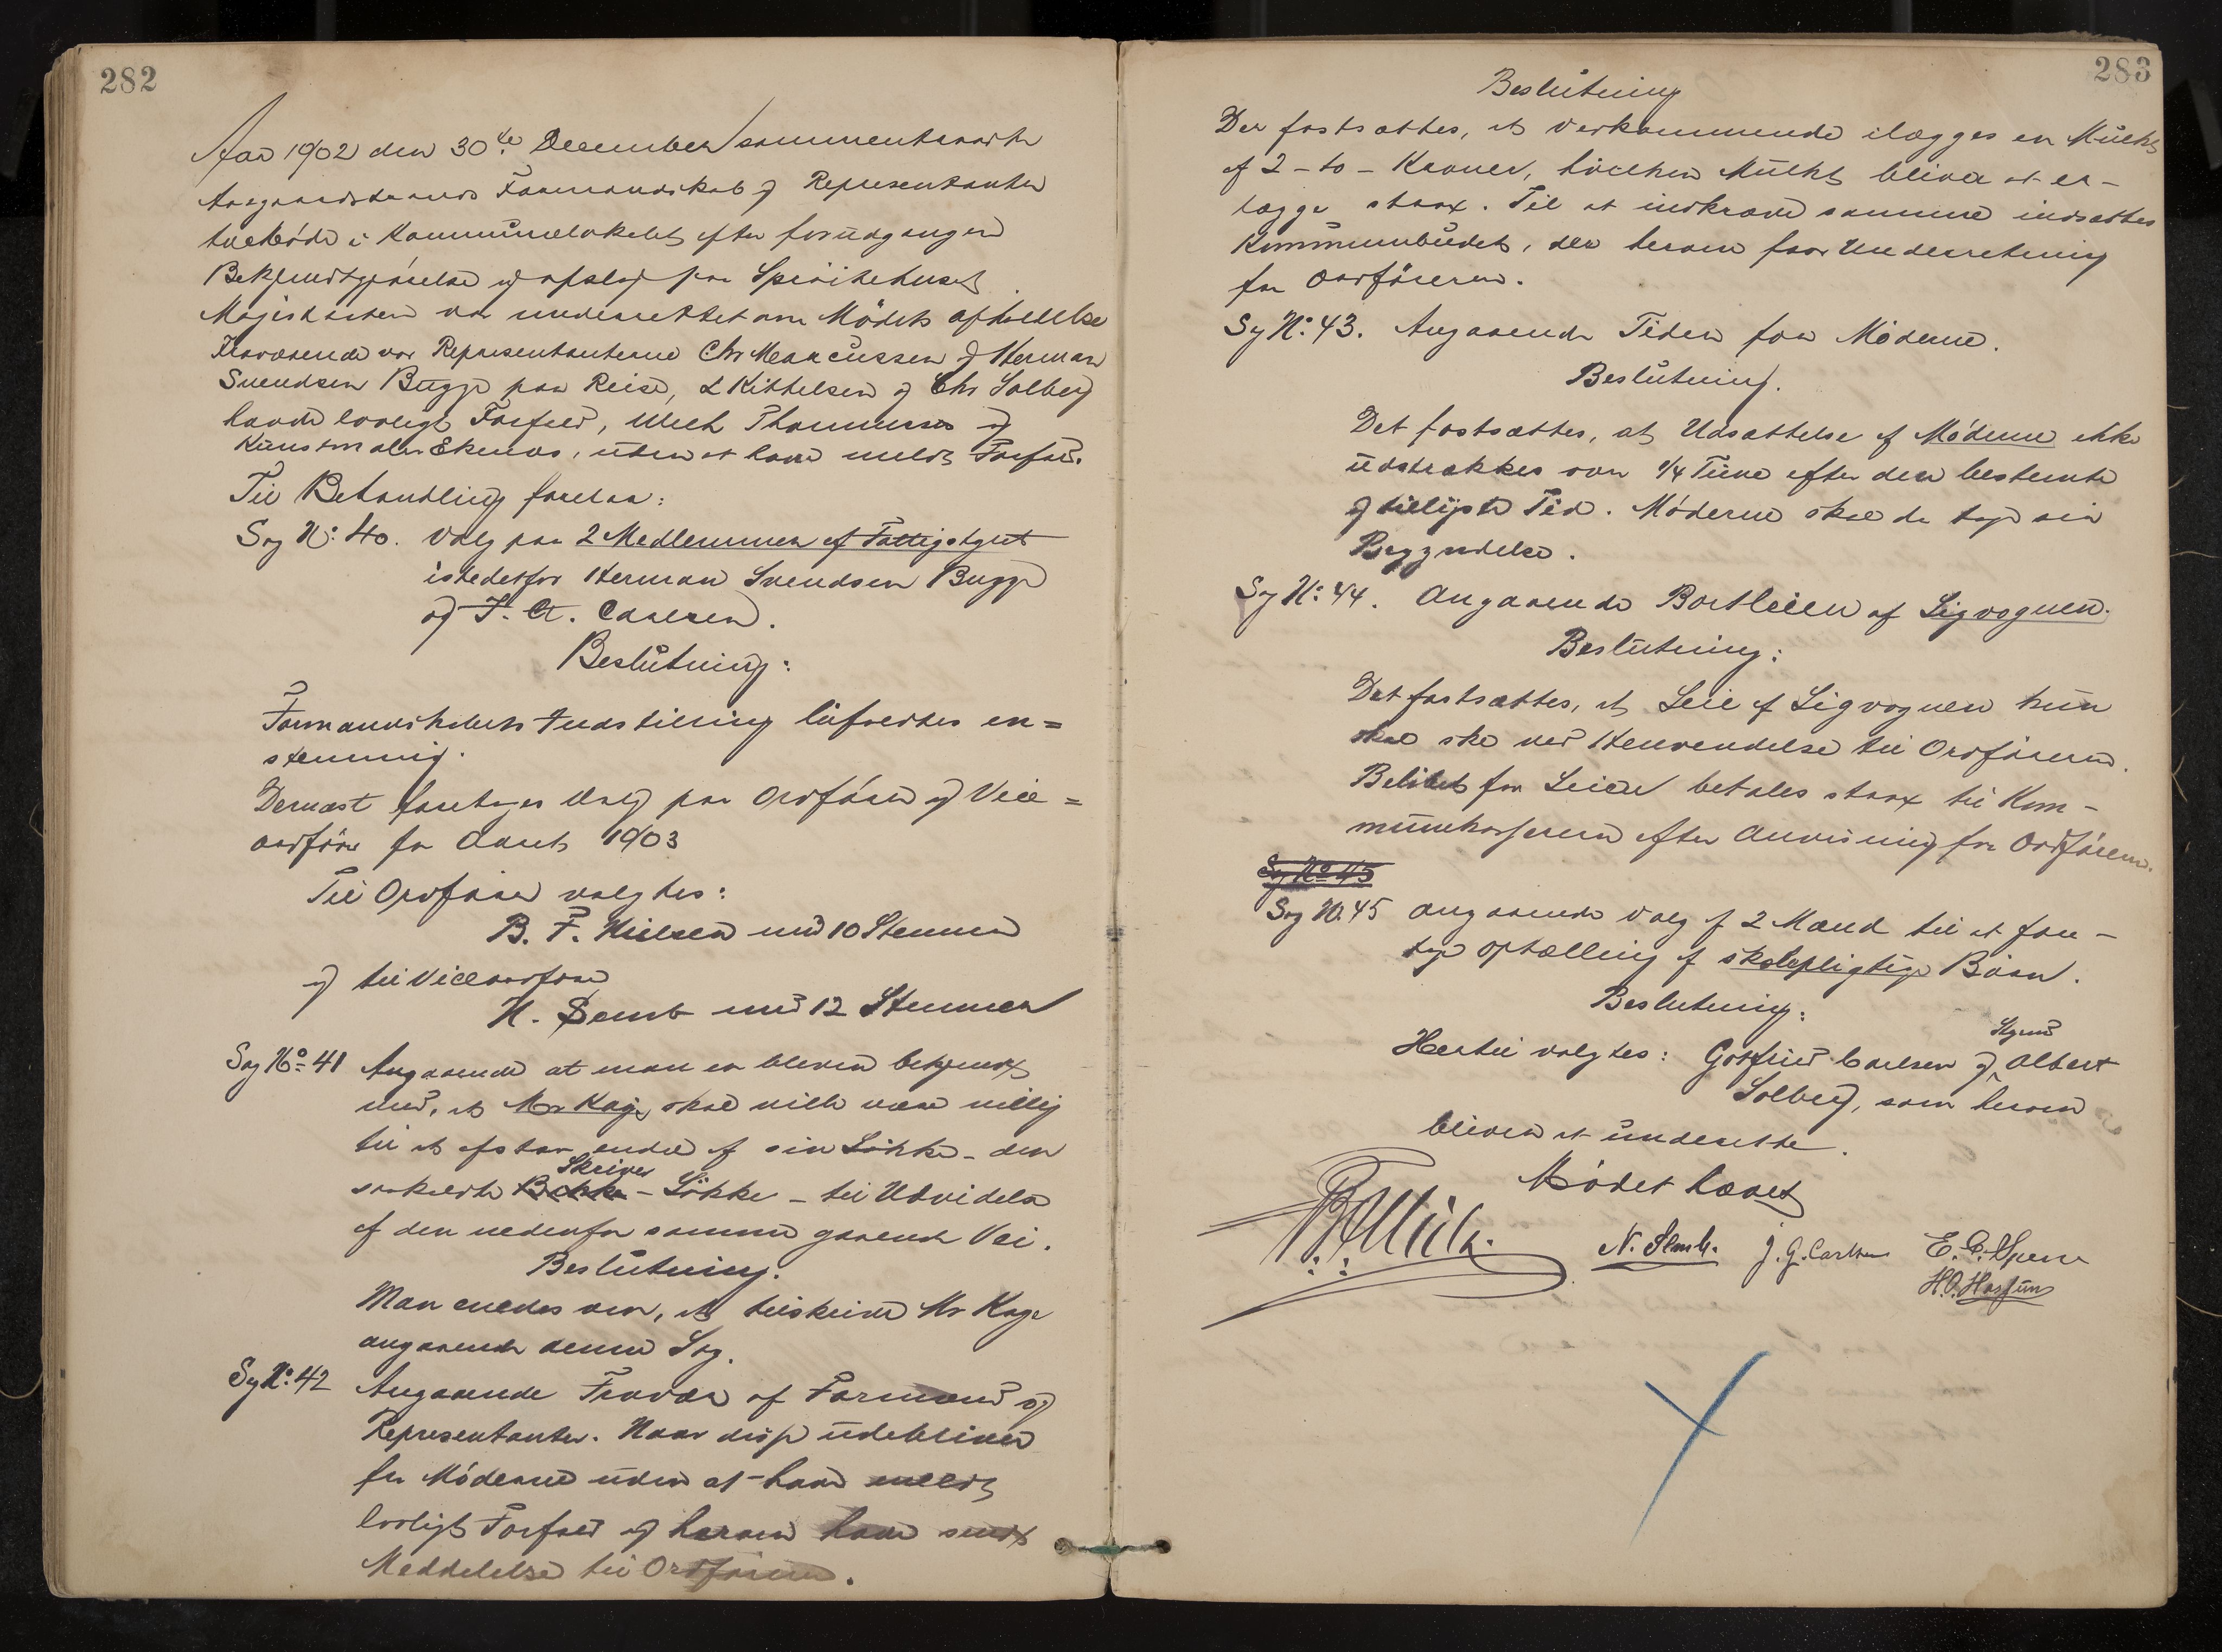 282
Aar 1902 den 30te December sammentraadte
Aasgaardstrands Formandskab og Representanter
talrbøde i Kommunelokalet efter forudgangen
Bekjendtgjørelse og opslag paa Sprøitehuset.
Magistraten var underrettet om Mødets afholdelse
Fraværende var Representanterne Chr Marcussen og Herman
Svendsen Bugge paa Reise, L Kittelsen og Chr Solberg
havde lovligt Forfald, Ulrch Thommesen og
Kunstmaler Ekenæs, uden at have meldt Forfald.
Til Behandling forelaa:
Sag No: 40. Valg paa 2 Medlemmer af Fattigstyret
istedetfor Herman Svendsen Bugge
og J. A. Carlsen.
Beslutning:
Formandskabets Indstilling bifaldtes en=
stemmig.
Dernæst foretoges Valg paa Ordfører og Vice=
ordfører for Aaret 1903
Til Ordfører valgtes:
B. F. Nielsen med 10 Stemmer
og til Viceordfører
N. Semb med 12 Stemmer
Sag No 41 Angaaende at man er bleven bekjendt
med, at Mr Kage skal ville være villig
til at afstaa endel af sin Løkke - den
Skriver
saakaldte Bakke - Løkke - til Udvidelse
af den nedenfor samme gaaende Vei.
Beslutning.
Man enedes om, at tilskrive Mr Kage
angaaende denne Sag.
Sag No: 42 Angaaende Fravær af Formænd og
Representanter. Naar disse udebliver
fra Møderne uden at have meldt
lovligt Forfald og herom have sendt
Meddelelse til Ordføreren.
283
Beslutning
Der fastsættes, at Vedkommende ilægges en Mulkt
af 2 - to - Kroner, hvilken Mulkt bliver at er-
lægge strax. Til at indkræve samme indsættes
Kommunebudet, der herom faar Underretning
fra Ordføreren.
Sag No: 43. Angaaende Tiden for Møderne.
Beslutning.
Det fastsættes, at Udsættelse af Møderne ikke
udstrækkes over 1/4 Time efter den bestemte
og tillyste Tid. Møderne skal da tage sin
Begyndelse.
Sag No: 44. Angaaende Bortleien af Ligvognen.
Beslutning:
Det fastsættes, at Leie af Ligvognen kun
skal ske ved Henvendelse til Ordføreren.
Beløbet for Leien betales strax til Kom-
munekassereren efter Anvisning fra Ordføreren.
Sag No 45
Sag No. 45 Angaaende Valg af 2 Mænd til at fore-
tage Optælling af skolepligtige Børn.
Beslutning:
Sgmd
Hertil valgtes: Gotfried Carlsen og Albert
Solberg, som herom
bliver at underrette.
Mødet hævet
N. Semb. J. G. Carlsen